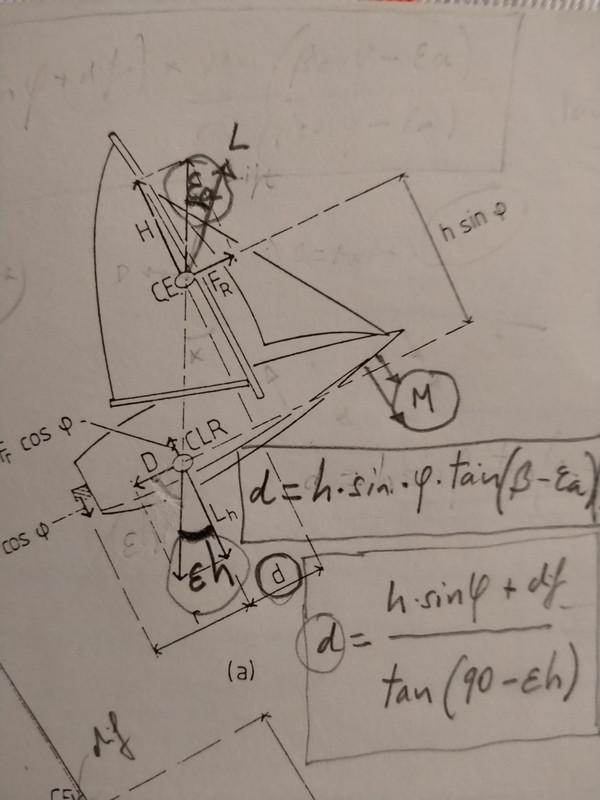 L
εa
H
h sin φ
CE
F_R
M
F_r cos φ
CLR
D
d = h·sin·φ·tan(β-εa)
L_h
cos φ
εh
d
d = (h·sinφ + df) / tan(90-εh)
(a)
dif
CE